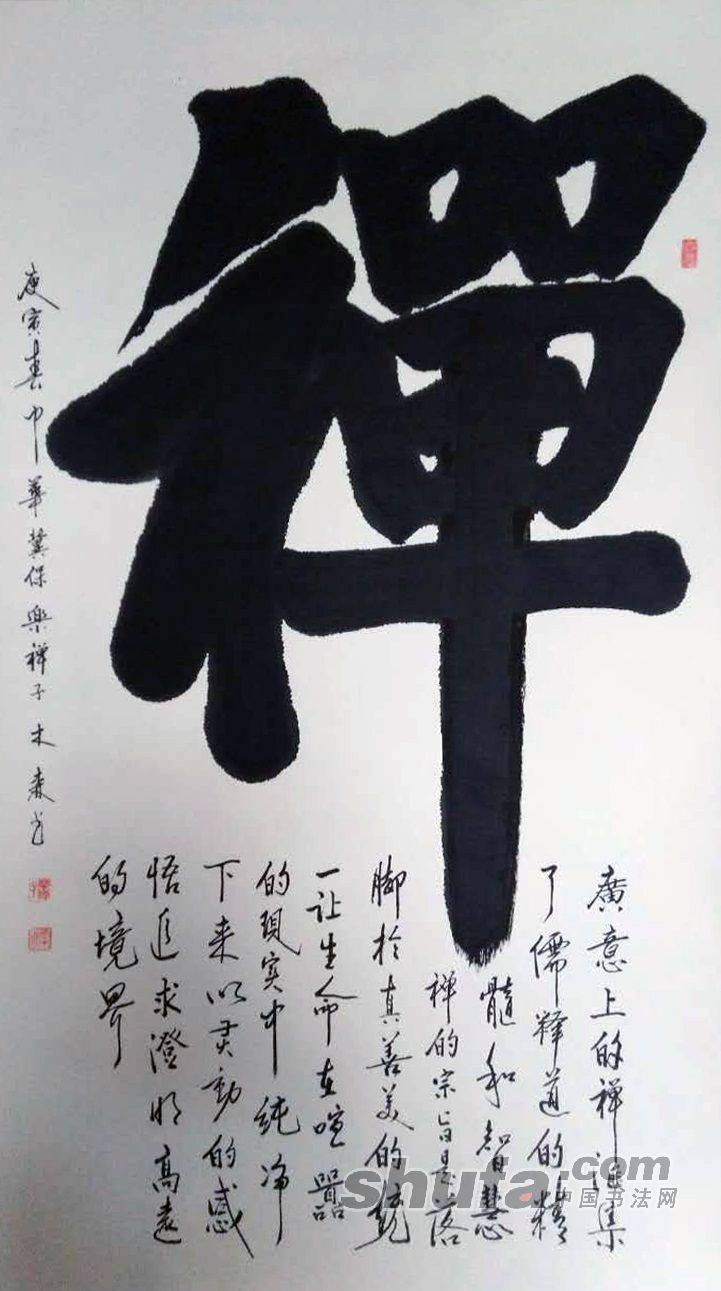 禪
廣意上的禅匯集
了儒释道的精
髓和智慧
禅的宗旨是落
脚於真善美的統
一让生命在喧嚣
的現实中純净
下来以灵動的感
悟追求澄明高遠
的境界
庚寅春中華冀保樂禅子木森书
shufa.com
中国书法网